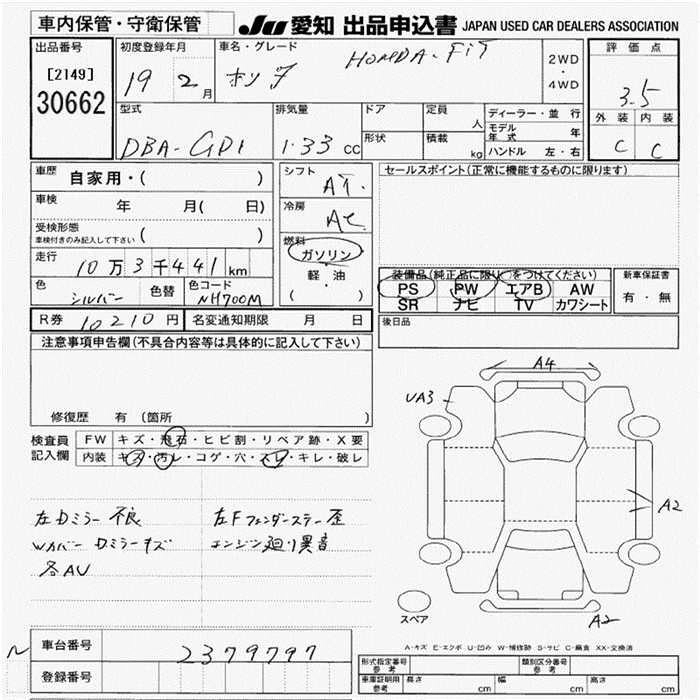 車内保管・守衛保管
JU 愛知 出品申込書 JAPAN USED CAR DEALERS ASSOCIATION
出品番号
[2149]
30662
初度登録年月
19 2月
車名・グレード
ホンダ HONDA・FiT
2WD
・
4WD
評価点
3.5
外装 内装
C C
型式
DBA-GD1
排気量
1.33 cc
ドア
形状
定員
人
積載
kg
ディーラー・並行
モデル年式 年
ハンドル 左・右
車歴
自家用・( )
車検
年 月( 日)
受検形態
車検付きのみ記入して下さい ( )
走行
10万3千441km
色
シルバー
色替
色コード
NH700M
シフト
AT.
冷房
AC
燃料
ガソリン
・
軽油
( )
セールスポイント(正常に機能するものに限ります)
装備品(純正品に限り○をつけてください)
PS PW エアB AW
SR ナビ TV カワシート
新車保証書
有・無
R券 10210円
名変通知期限 月 日
後日品
注意事項申告欄(不具合内容等は具体的に記入して下さい)
修復歴 有 (箇所 )
検査員記入欄
FW キズ・飛石・ヒビ割・リペア跡・X要
内装 キズ・汚レ・コゲ・穴・スレ・キレ・破レ
左Dミラー不良
Wカバー Dミラーキズ
各AU
左Fフェンダーステー歪
エンジン廻り異音
A4
UA3
A2
A2
スペア
A-キズ E-エクボ U-凹み W-補修跡 S-サビ C-腐食 XX-交換済
N
車台番号
2379797
登録番号
形式指定番号 参考
類別区分番号 参考
車庫証明用 参考 長さ cm 幅 cm 高さ cm